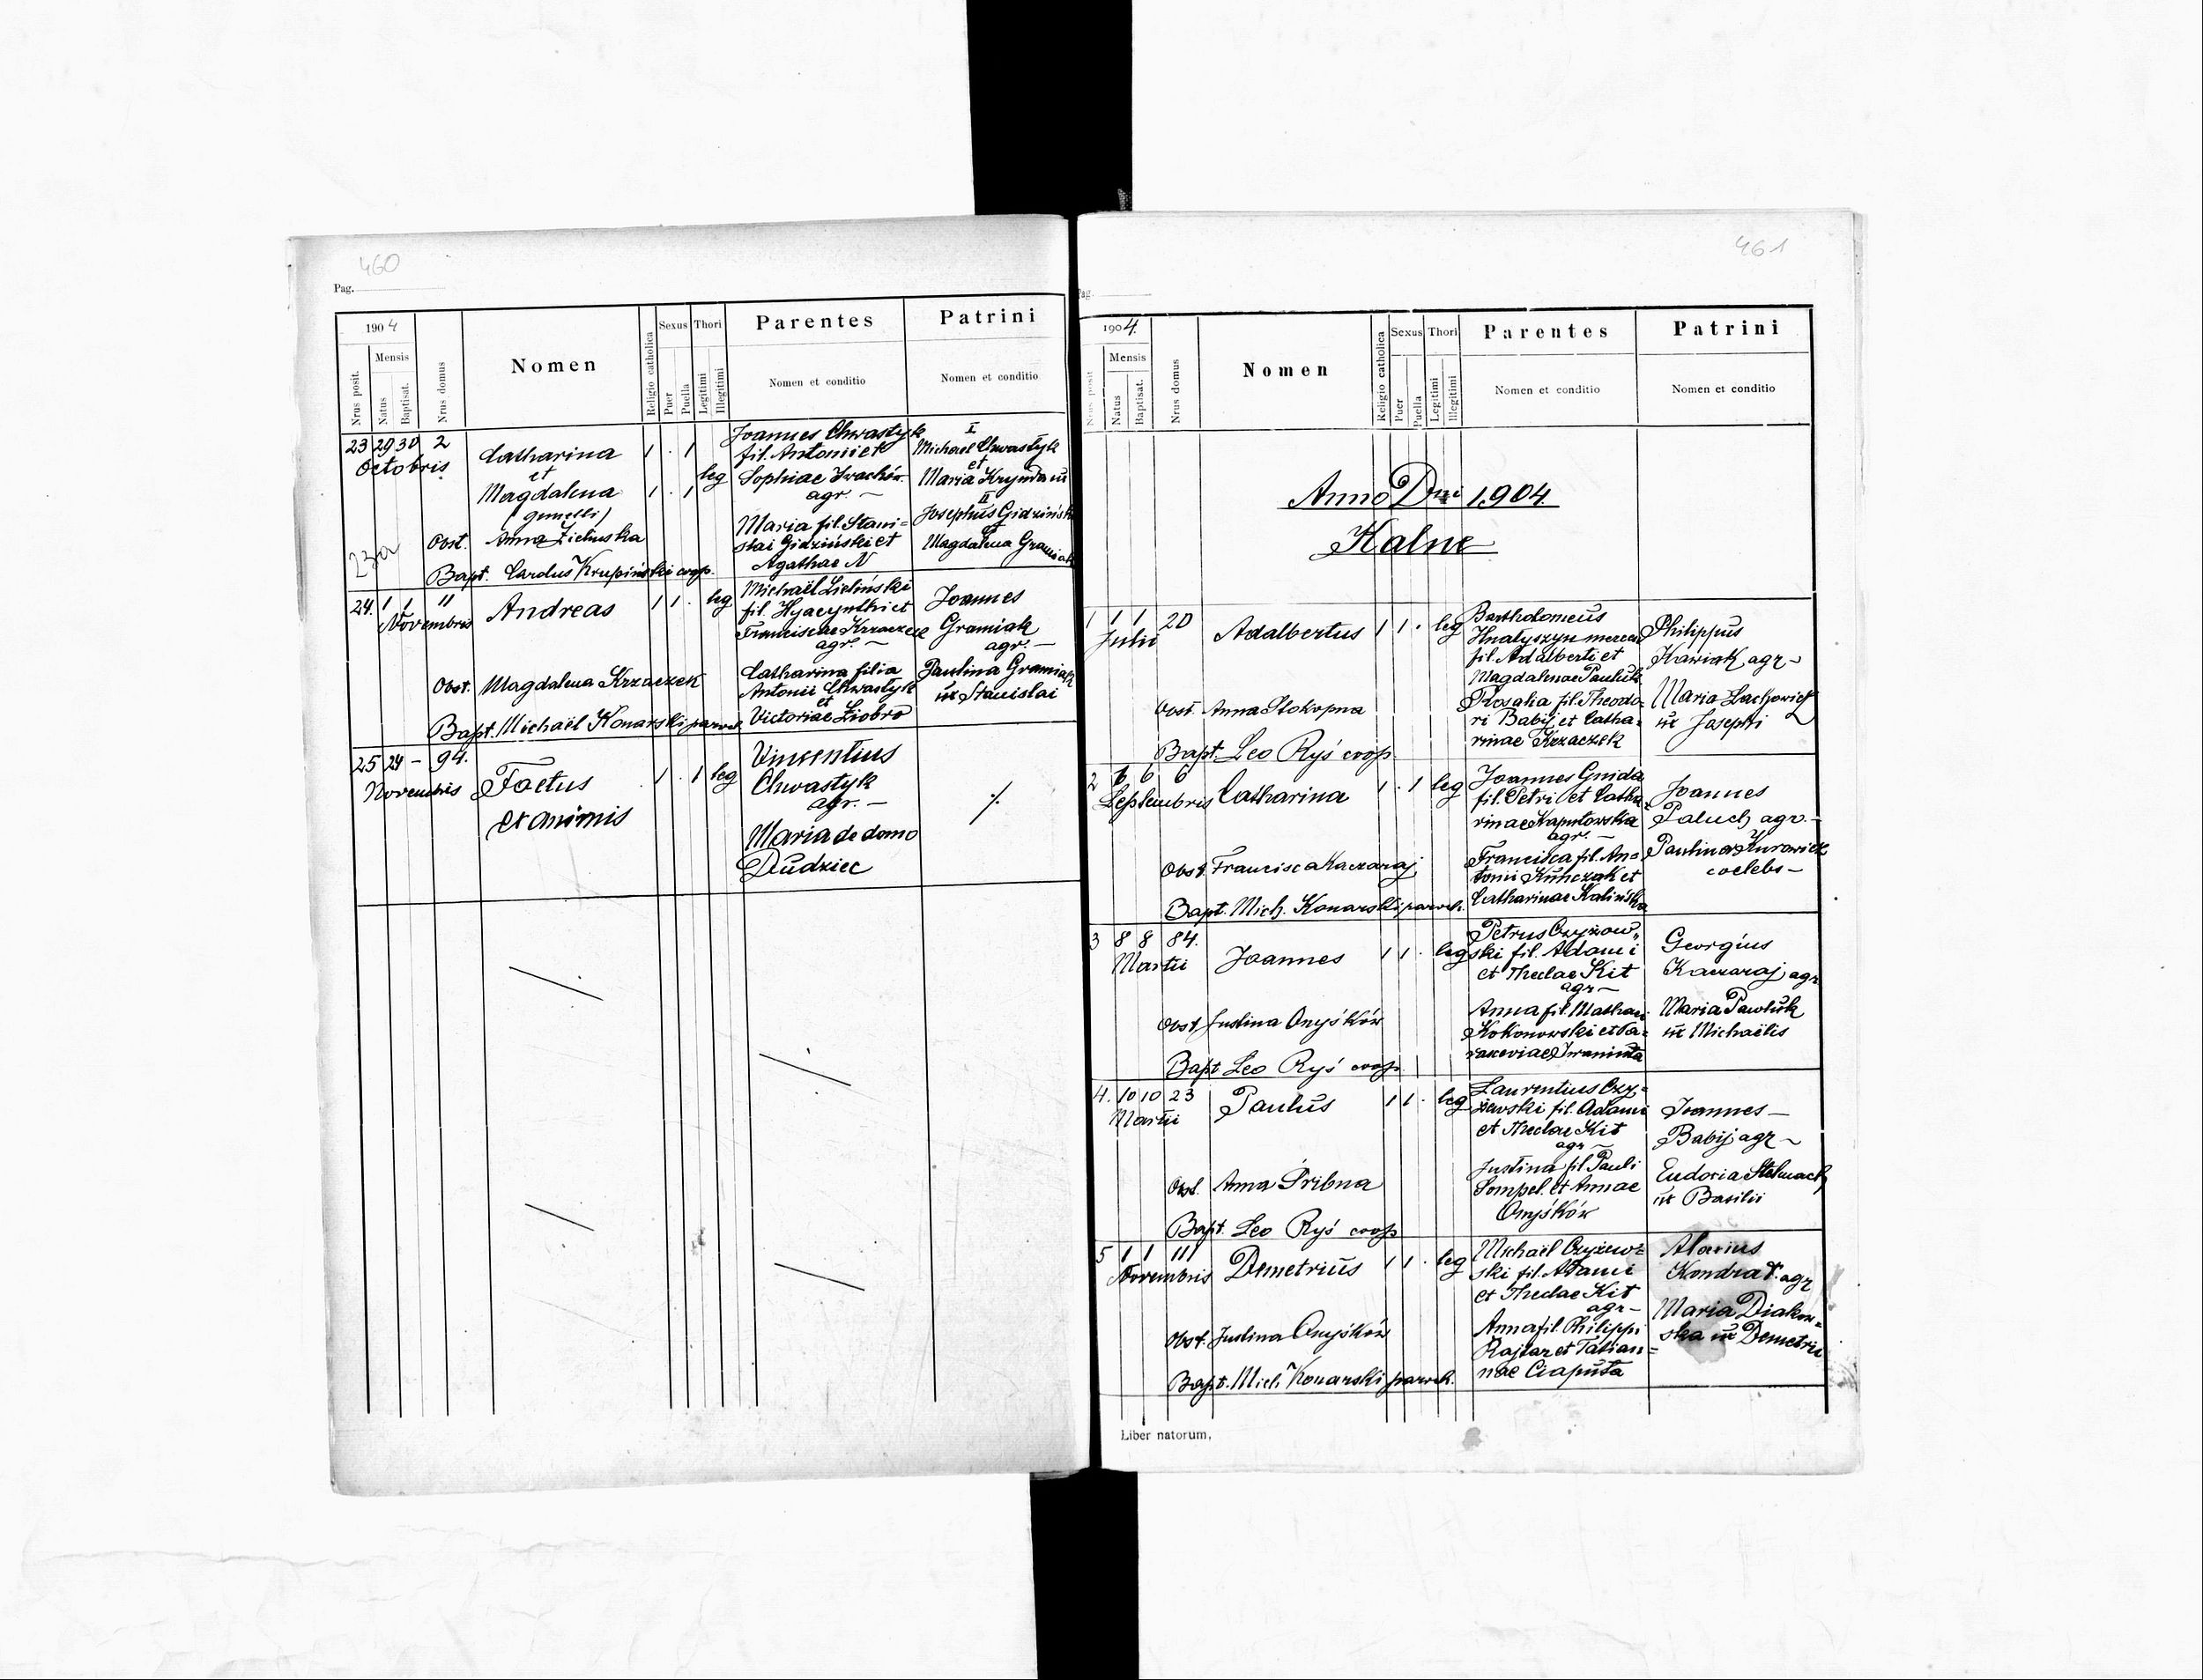 460
Pag.
1904
Mensis
Nrus posit.
Natus
Baptisat.
Nrus domus
Nomen
Religio catholica
Sexus
Puer
Puella
Thori
Legitimi
Illegitimi
Parentes
Nomen et conditio
Patrini
Nomen et conditio
23 29 30 2
Octobris
Catharina
et
Magdalena
(gemelli)
Obst. Anna Zielinska
23a
Bapt. Carolus Krupiński coop.
1 . 1
1 . 1
leg
Joannes Chwastyk
fil. Antonii et
Sophiae Iwachów
agr. —
Maria fil. Stani=
slai Gidziński et
Agathae N
I
Michael Chwastyk
et
Maria Krynda ux
II
Josephus Gidziński
et
Magdalena Gramiak
24. 1 1 11
Novembris
Andreas
1 1 . leg
Obst. Magdalena Krzaczek
Bapt. Michaël Konarski paroch
Michaël Zieliński
fil. Hyacynthi et
Franciscae Krzaczek
agr. —
Catharina filia
Antonii Chwastyk
et
Victoriae Ziobro
Joannes
Gramiak
agr. —
Paulina Gramiak
ux Stanislai
25 24 — 94.
Novembris
Foetus
exanimis
1 . 1 leg
Vincentius
Chwastyk
agr. —
Maria de domo
Dudziec
·/.
461
Pag.
1904.
Mensis
Nrus posit
Natus
Baptisat.
Nrus domus
Nomen
Religio catholica
Sexus
Puer
Puella
Thori
Legitimi
Illegitimi
Parentes
Nomen et conditio
Patrini
Nomen et conditio
Anno Dni 1904.
Kalne
1 1 1 20
Julii
Adalbertus
1 1 . leg
Obst. Anna Stokopna
Bapt. Leo Ryś coop
Bartholomeus
Hnatyszyn mercen
fil. Adalberti et
Magdalenae Pauluk
Rosalia fil. Theodo=
ri Babij et Catha=
rinae Krzaczek
Philippus
Hawiak agr —
Maria Lachowicz
ux Josephi
2 6 6 6
Septembris
Catharina
1 . 1 leg
Obst Francisca Kaczaraj
Bapt. Mich. Konarski paroch.
Joannes Gnida
fil. Petri et Catha=
rinae Kaputowska
agr. —
Francisca fil. An=
tonii Kuhczak et
Catharinae Kalińska
Joannes
Paluch agr. —
Paulina Kurowicz
coelebs —
3 8 8 84.
Martii
Joannes
1 1 . leg
Obst Justina Onyśków
Bapt Leo Ryś coop
Petrus Czyżow=
ski fil. Adami
et Theclae Kit
agr —
Anna fil. Mathaei
Kokonowski et Pa=
rasceviae Iwaniuta
Georgius
Kaczaraj agr
Maria Pawluk
ux Michaelis
4. 10 10 23
Martii
Paulus
1 1 . leg
Obst. Anna Pribna
Bapt. Leo Ryś coop
Laurentius Czy=
żewski fil. Adami
et Theclae Kit
agr —
Justina fil Pauli
Sompel. et Annae
Onyśków
Joannes —
Babij agr —
Eudoxia Stelmach
ux Basilii
5 1 1 111
Novembris
Demetrius
1 1 . leg
Obst. Justina Onyśków
Bapt. Mich Konarski paroch.
Michaël Czyżew=
ski fil. Adami
et Theclae Kit
agr —
Anna fil. Philippi
Rajtar et Tatian=
nae Ciaputa
Alexius
Kondrat. agr
Maria Diakow=
ska ux Demetrii
Liber natorum,